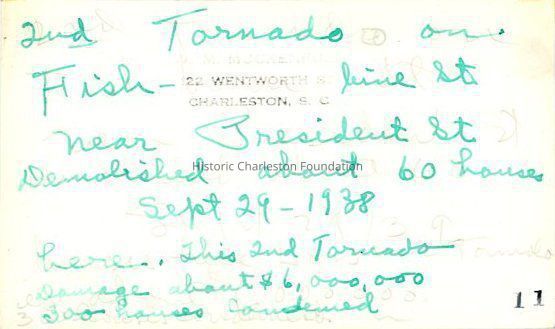 2nd Tornado on
22 WENTWORTH S
Fish- burne St
CHARLESTON, S. C.
near President St
Historic Charleston Foundation
Demolished about 60 houses
Sept 29-1938
here. This 2nd Tornado
Damage about $6,000,000
300 houses Condemed
11